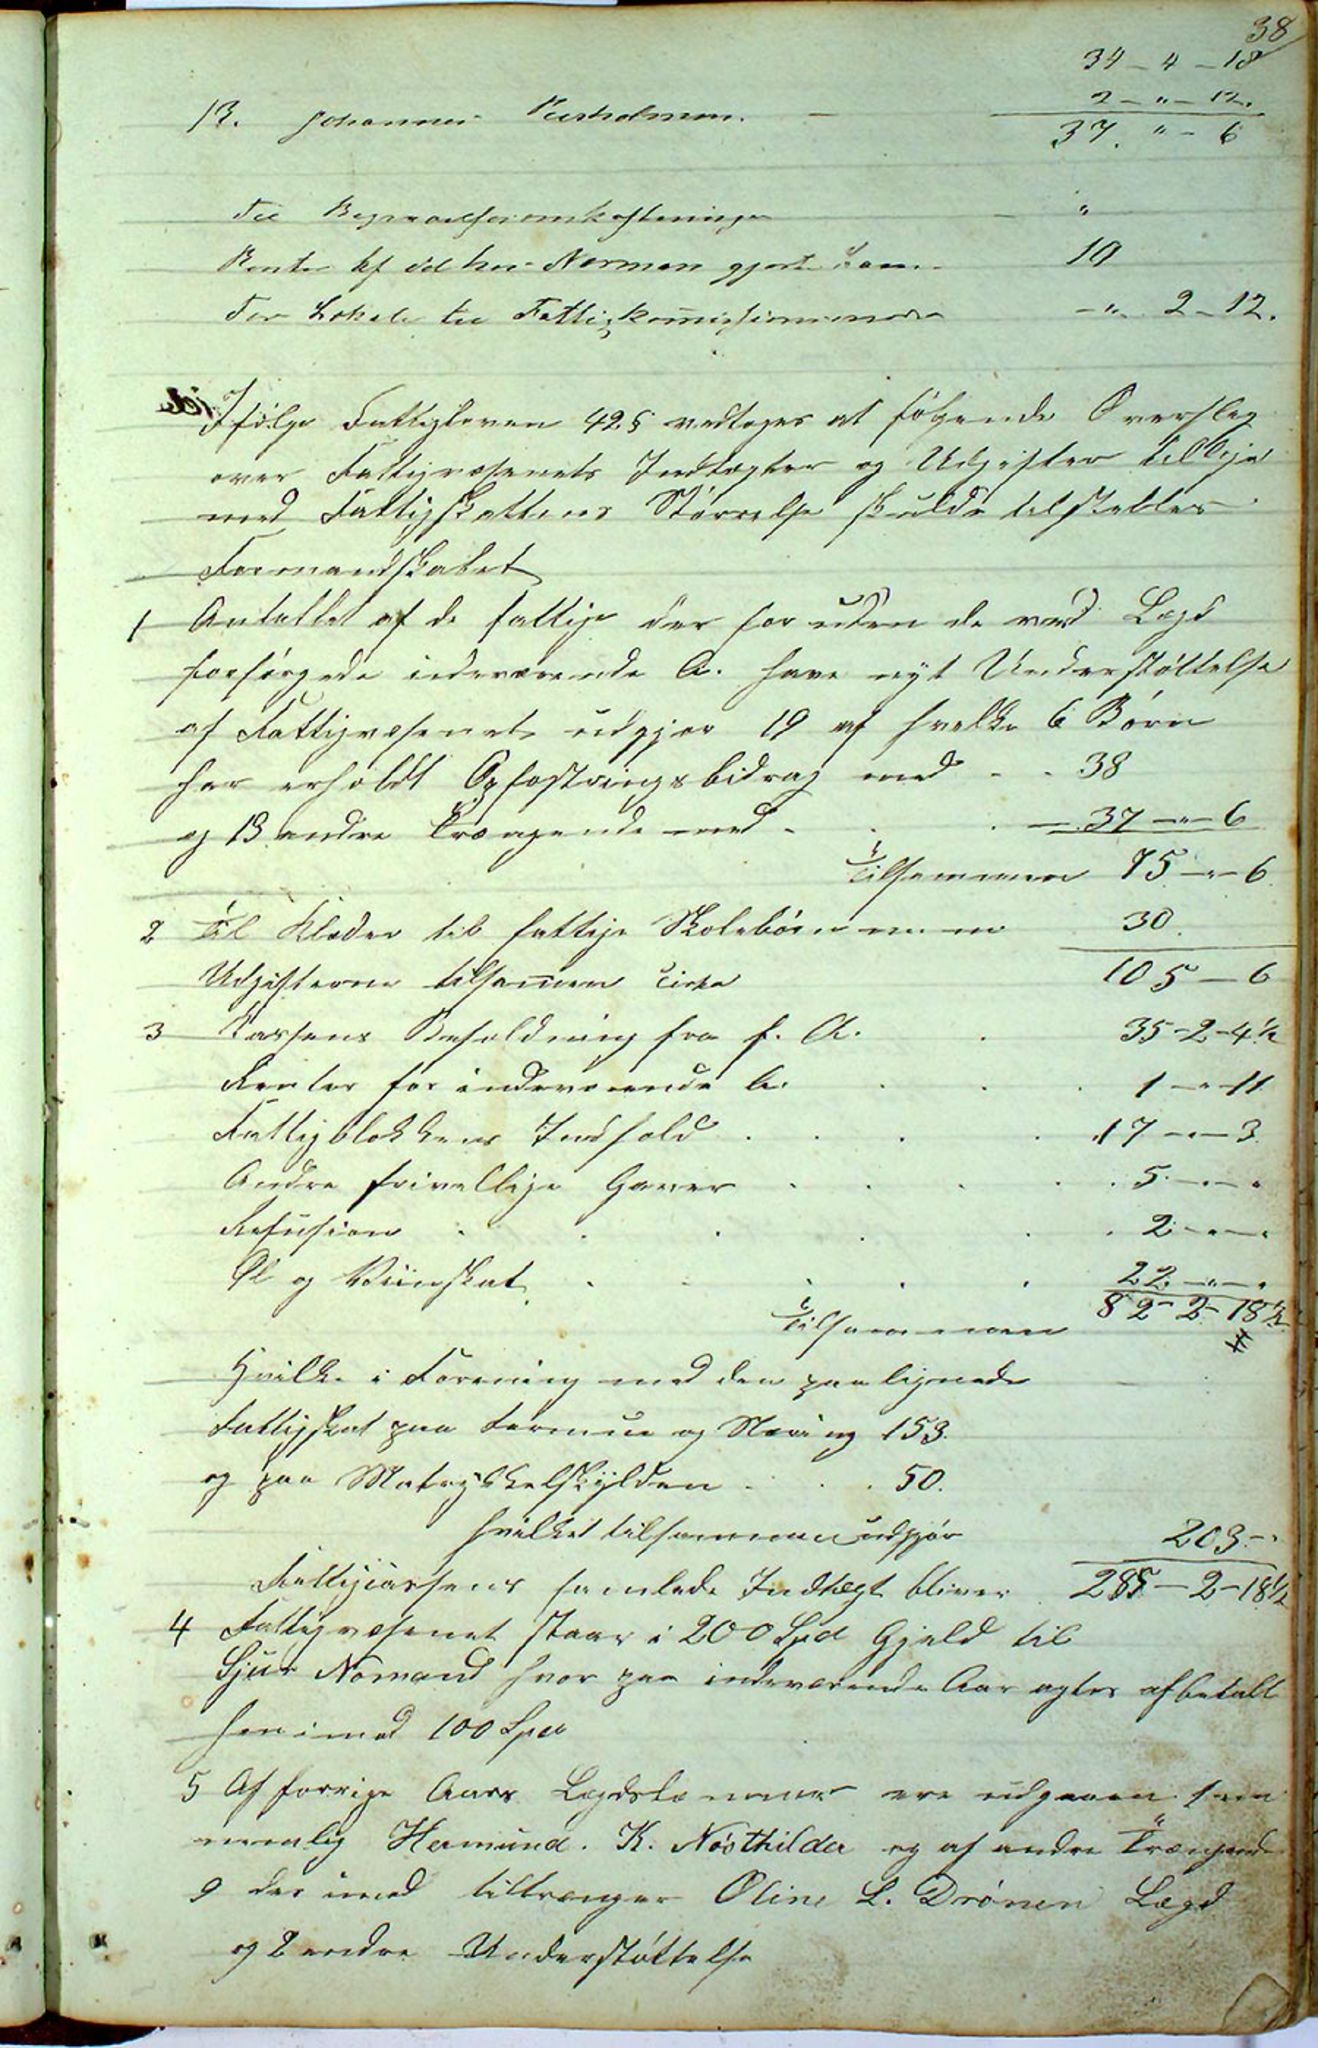 38
34 - 4 - 18
13. Johannes Rusholmen. - 2 - " - 12.
37. " - 6
Til Begravelsesomkostninger - "
Renter af det hos Norman gjorte Laan 10
For Lokale til Fattigkommissionen - " - 2 - 12.
Ifølge Fattigloven 42 § vedtoges at følgende Overslag
over Fattigvæsenets Indtægter og Udgifter tillige
med Fattigskattens Størrelse skulde tilstilles
Formandskabet
1 Antallet af de fattige der foruden de ved Lægd
forsørgede indeværende A. have nyt Understøttelse
af Fattigvæsenet udgjør 19 af hvilke 6 Børn
har erholdt Opfostringsbidrag med - - 38
og 13 andre Trængende med - . . - 37 - " - 6
Tilsammen 75 - " - 6
2 Til Klæder til fattige Skolebørn 30.
Udgifterne tilsamen cirka 105 - 6
3 Cassens Beholdning fra f. A. . 35 - 2 - 4½
Renter for indeværende A. . . . 1 - " - 11
Fattigblokkens Indhold . . . . 17 - " - 3
Andre frivillige Gaver . . . . . 5 - " - "
Refusion . . . . . . 2 - " - "
Øl og Viinskat . . . . . 22 - " - "
Tilsammen 82 - 2 - 18½
Hvilke i Forening med den paalignede
Fattigskat paa Formue og Næring 153.
og paa Matrykkelskylden . . . 50.
hvilket tilsammen udgjør 203 - "
Fattigcassens samlede Indtægt bliver 285 - 2 - 18½
4 Fattigvæsenet staar i 200 Spd Gjeld til
Sjur Nomand hvor paa indeværende Aar agtes afbetalt
henimod 100 Spd
5 Af forrige Aars Lægdslemmer ere udgaaen
nemlig Hermund. K. Nøsthilder og af andre Trængende
9 derimod tiltrænger Oline L. Drønen Lægd
og 2 andre Understøttelse